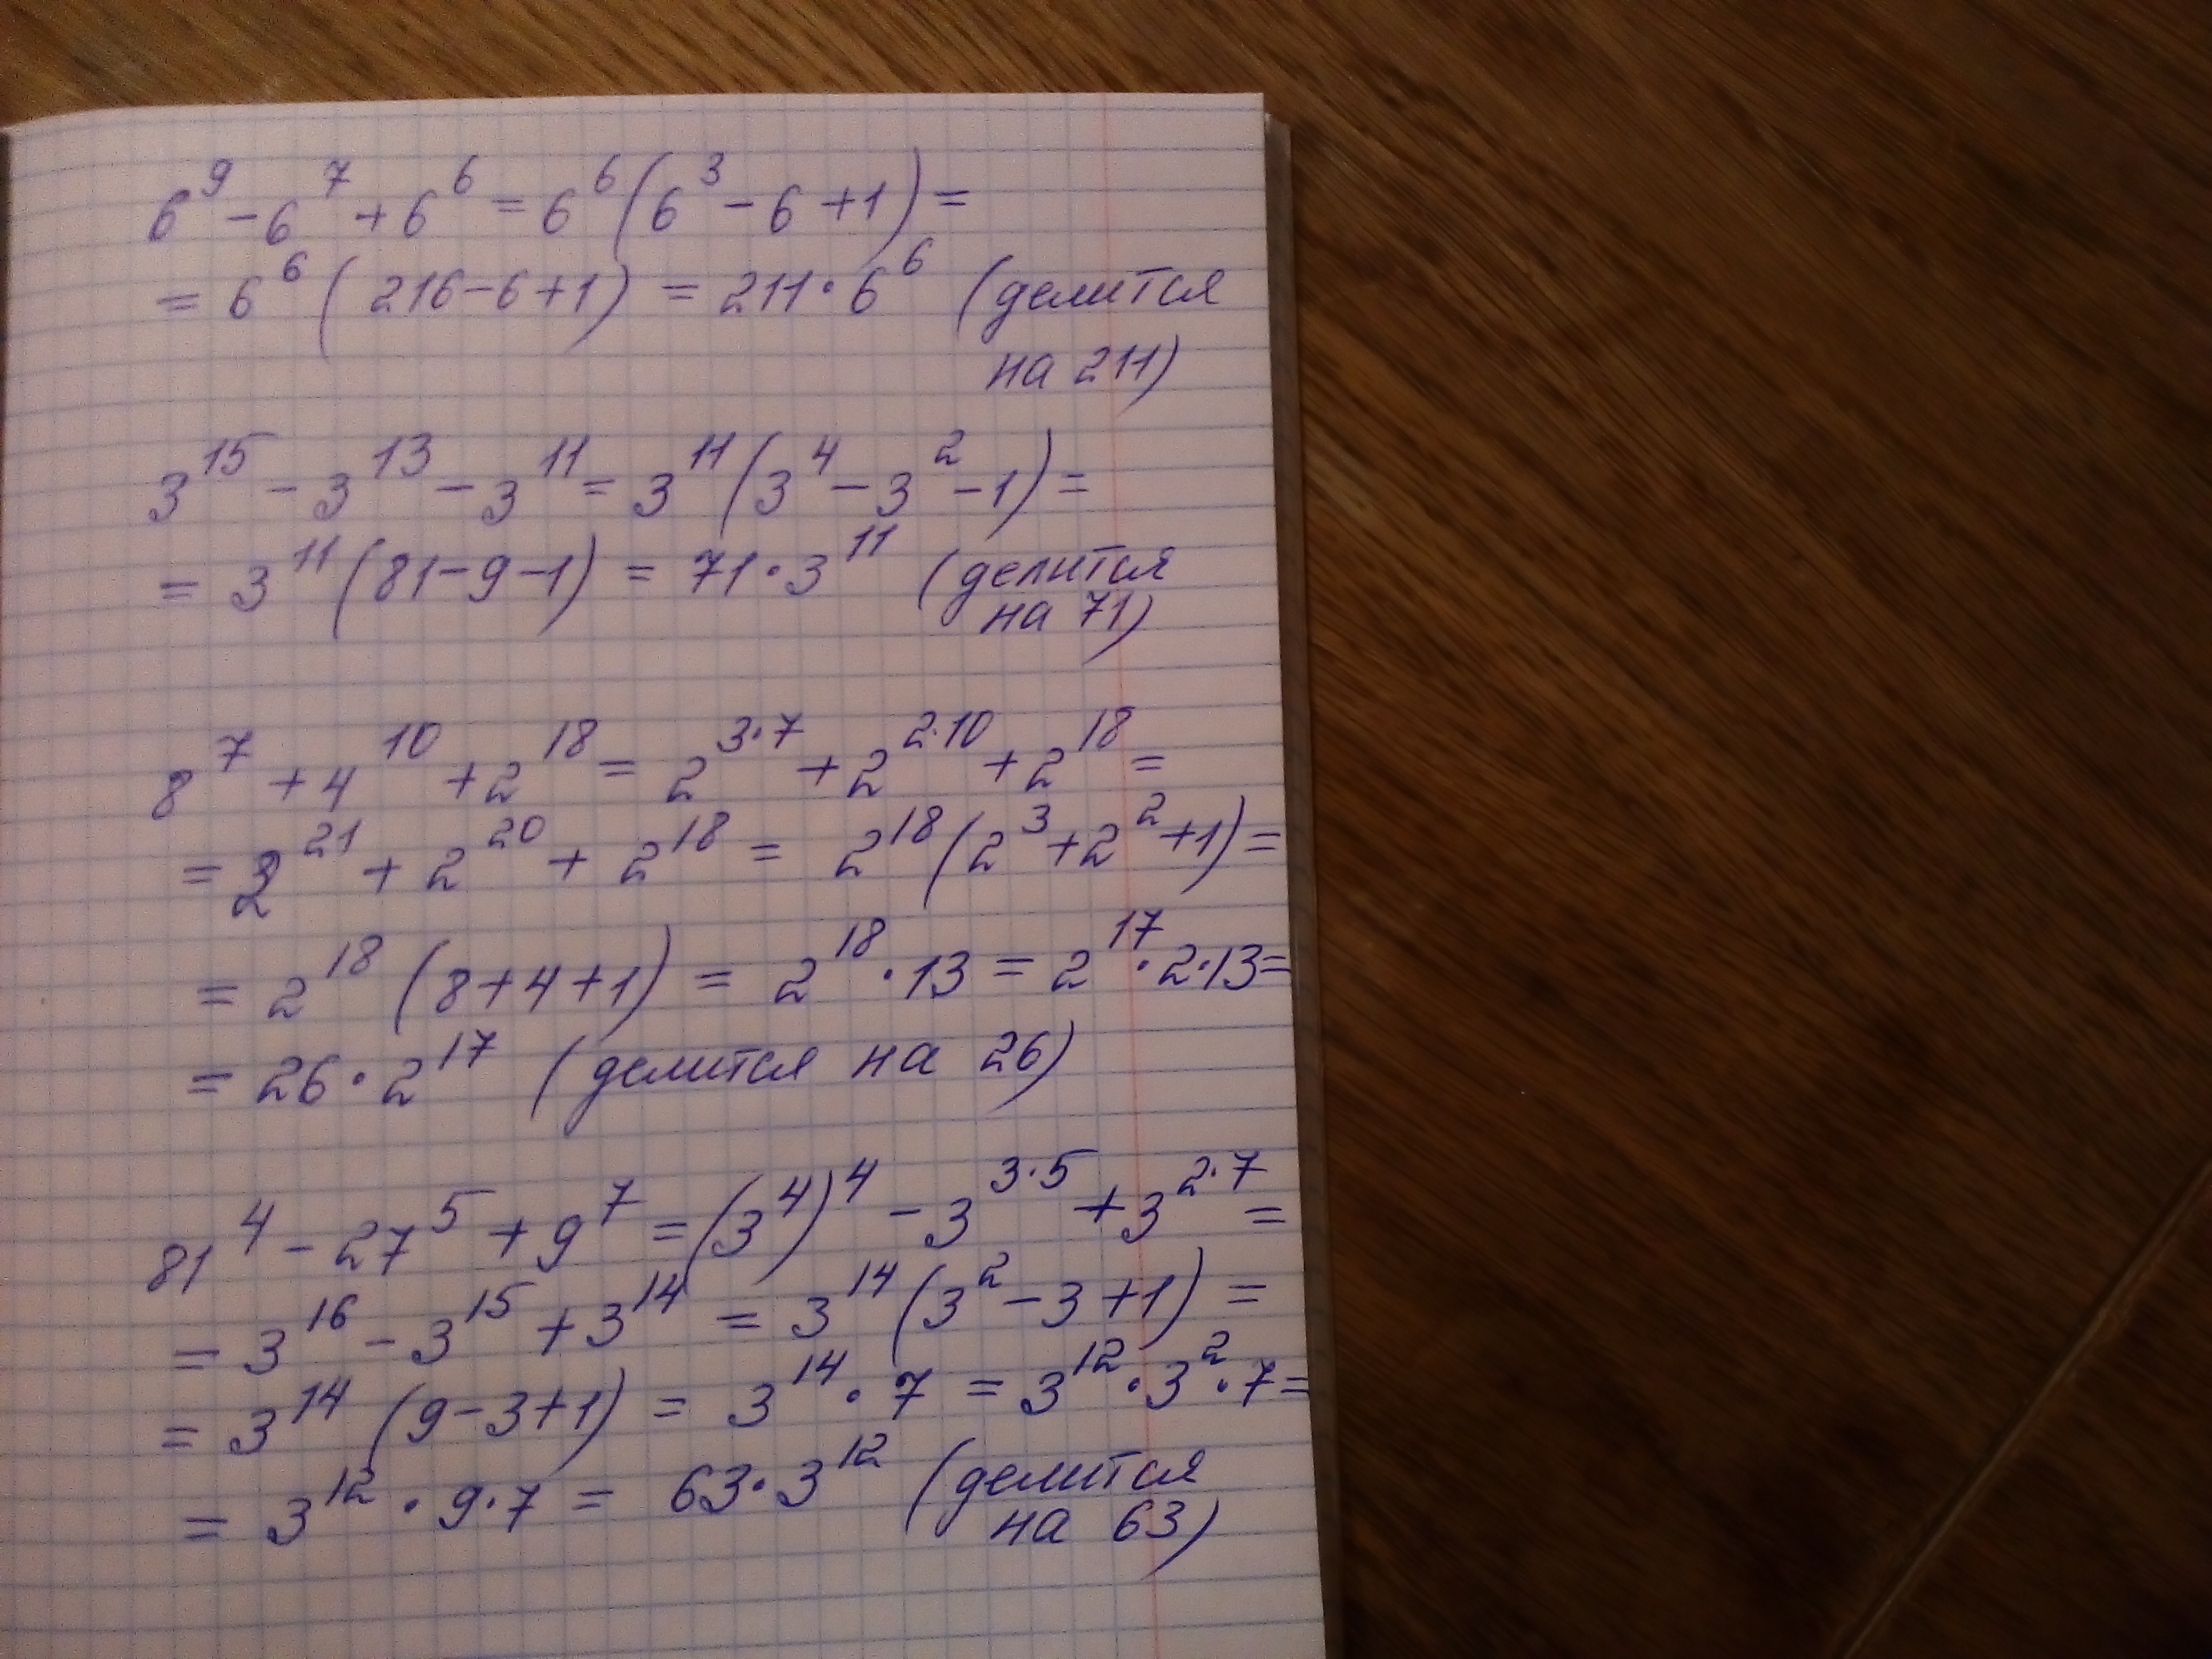 6⁹ - 6⁷ + 6⁶ = 6⁶ (6³ - 6 + 1) =
= 6⁶ (216 - 6 + 1) = 211 · 6⁶ (делится
на 211)
3¹⁵ - 3¹³ - 3¹¹ = 3¹¹ (3⁴ - 3² - 1) =
= 3¹¹ (81 - 9 - 1) = 71 · 3¹¹ (делится
на 71)
8⁷ + 4¹⁰ + 2¹⁸ = 2³·⁷ + 2²·¹⁰ + 2¹⁸ =
= 2²¹ + 2²⁰ + 2¹⁸ = 2¹⁸ (2³ + 2² + 1) =
= 2¹⁸ (8 + 4 + 1) = 2¹⁸ · 13 = 2¹⁷ · 2 · 13 =
= 26 · 2¹⁷ (делится на 26)
81⁴ - 27⁵ + 9⁷ = (3⁴)⁴ - 3³·⁵ + 3²·⁷ =
= 3¹⁶ - 3¹⁵ + 3¹⁴ = 3¹⁴ (3² - 3 + 1) =
= 3¹⁴ (9 - 3 + 1) = 3¹⁴ · 7 = 3¹² · 3² · 7 =
= 3¹² · 9 · 7 = 63 · 3¹² (делится
на 63)